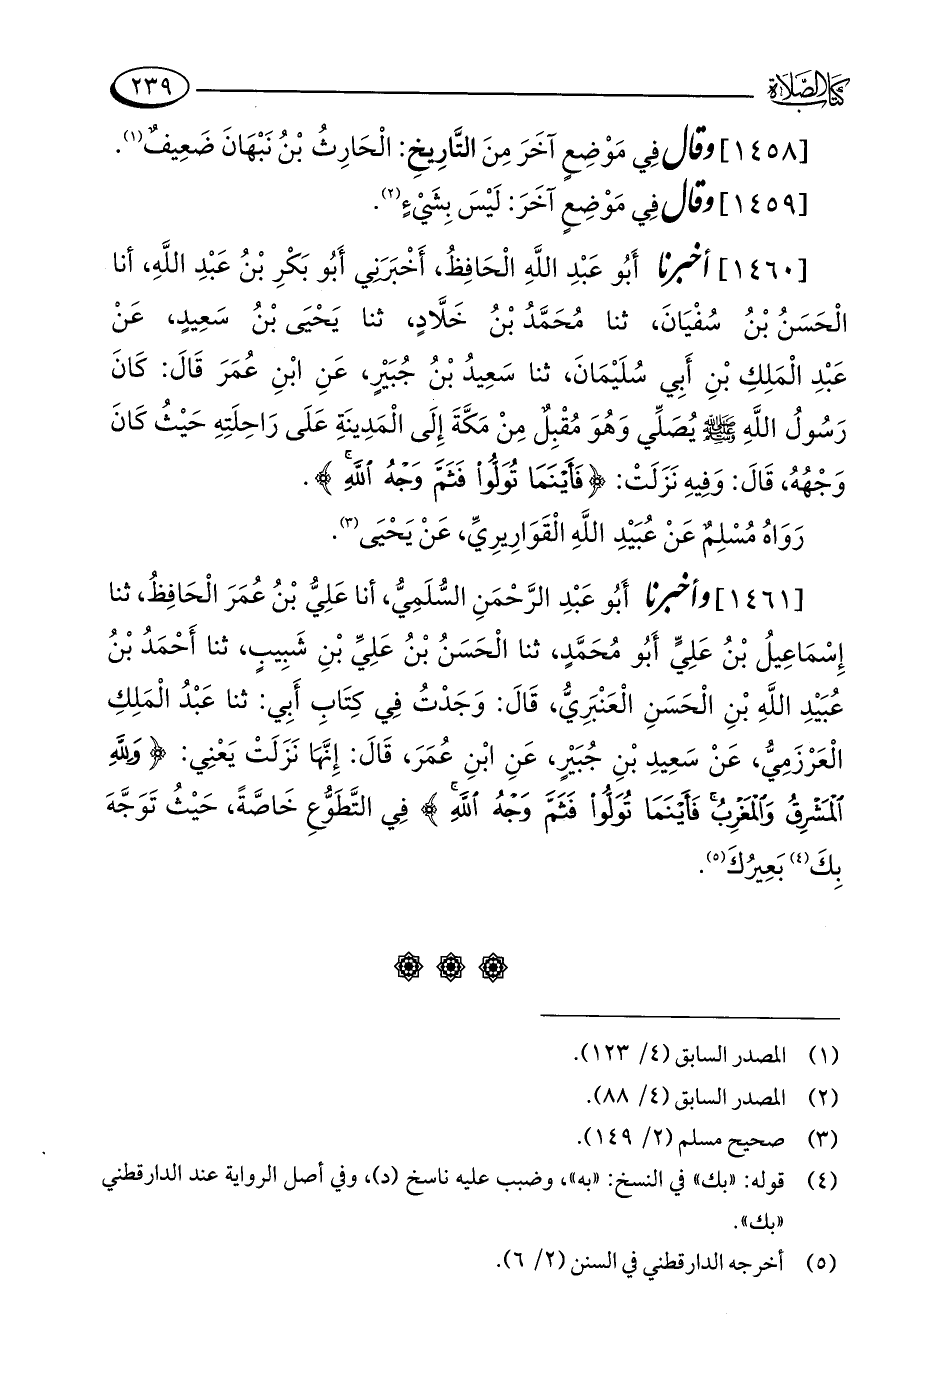 كتاب الصلاة ٢٣٩
[١٤٥٨] وقال فِي مَوْضِعٍ آخَرَ مِنَ التَّارِيخِ: الْحَارِثُ بْنُ نَبْهَانَ ضَعِيفٌ(١).
[١٤٥٩] وقال فِي مَوْضِعٍ آخَرَ: لَيْسَ بِشَيْءٍ(٢).
[١٤٦٠] أخبرنا أَبُو عَبْدِ اللَّهِ الْحَافِظُ، أَخْبَرَنِي أَبُو بَكْرِ بْنُ عَبْدِ اللَّهِ، أنا
الْحَسَنُ بْنُ سُفْيَانَ، ثنا مُحَمَّدُ بْنُ خَلَّادٍ، ثنا يَحْيَى بْنُ سَعِيدٍ، عَنْ
عَبْدِ الْمَلِكِ بْنِ أَبِي سُلَيْمَانَ، ثنا سَعِيدُ بْنُ جُبَيْرٍ، عَنِ ابْنِ عُمَرَ قَالَ: كَانَ
رَسُولُ اللَّهِ ﷺ يُصَلِّي وَهُوَ مُقْبِلٌ مِنْ مَكَّةَ إِلَى الْمَدِينَةِ عَلَى رَاحِلَتِهِ حَيْثُ كَانَ
وَجْهُهُ، قَالَ: وَفِيهِ نَزَلَتْ: ﴿فَأَيْنَمَا تُوَلُّوا۟ فَثَمَّ وَجْهُ ٱللَّهِۚ﴾.
رَوَاهُ مُسْلِمٌ عَنْ عُبَيْدِ اللَّهِ الْقَوَارِيرِيِّ، عَنْ يَحْيَى(٣).
[١٤٦١] وأخبرنا أَبُو عَبْدِ الرَّحْمَنِ السُّلَمِيُّ، أنا عَلِيُّ بْنُ عُمَرَ الْحَافِظُ، ثنا
إِسْمَاعِيلُ بْنُ عَلِيٍّ أَبُو مُحَمَّدٍ، ثنا الْحَسَنُ بْنُ عَلِيِّ بْنِ شَبِيبٍ، ثنا أَحْمَدُ بْنُ
عُبَيْدِ اللَّهِ بْنِ الْحَسَنِ الْعَنْبَرِيُّ، قَالَ: وَجَدْتُ فِي كِتَابِ أَبِي: ثنا عَبْدُ الْمَلِكِ
الْعَرْزَمِيُّ، عَنْ سَعِيدِ بْنِ جُبَيْرٍ، عَنِ ابْنِ عُمَرَ، قَالَ: إِنَّهَا نَزَلَتْ يَعْنِي: ﴿وَلِلَّهِ
ٱلْمَشْرِقُ وَٱلْمَغْرِبُۚ فَأَيْنَمَا تُوَلُّوا۟ فَثَمَّ وَجْهُ ٱللَّهِۚ﴾ فِي التَّطَوُّعِ خَاصَّةً، حَيْثُ تَوَجَّهَ
بِكَ(٤) بَعِيرُكَ(٥).
(١) المصدر السابق (٤/ ١٢٣).
(٢) المصدر السابق (٤/ ٨٨).
(٣) صحيح مسلم (٢/ ١٤٩).
(٤) قوله: «بك» في النسخ: «به»، وضبب عليه ناسخ (د)، وفي أصل الرواية عند الدارقطني
«بك».
(٥) أخرجه الدارقطني في السنن (٢/ ٦).